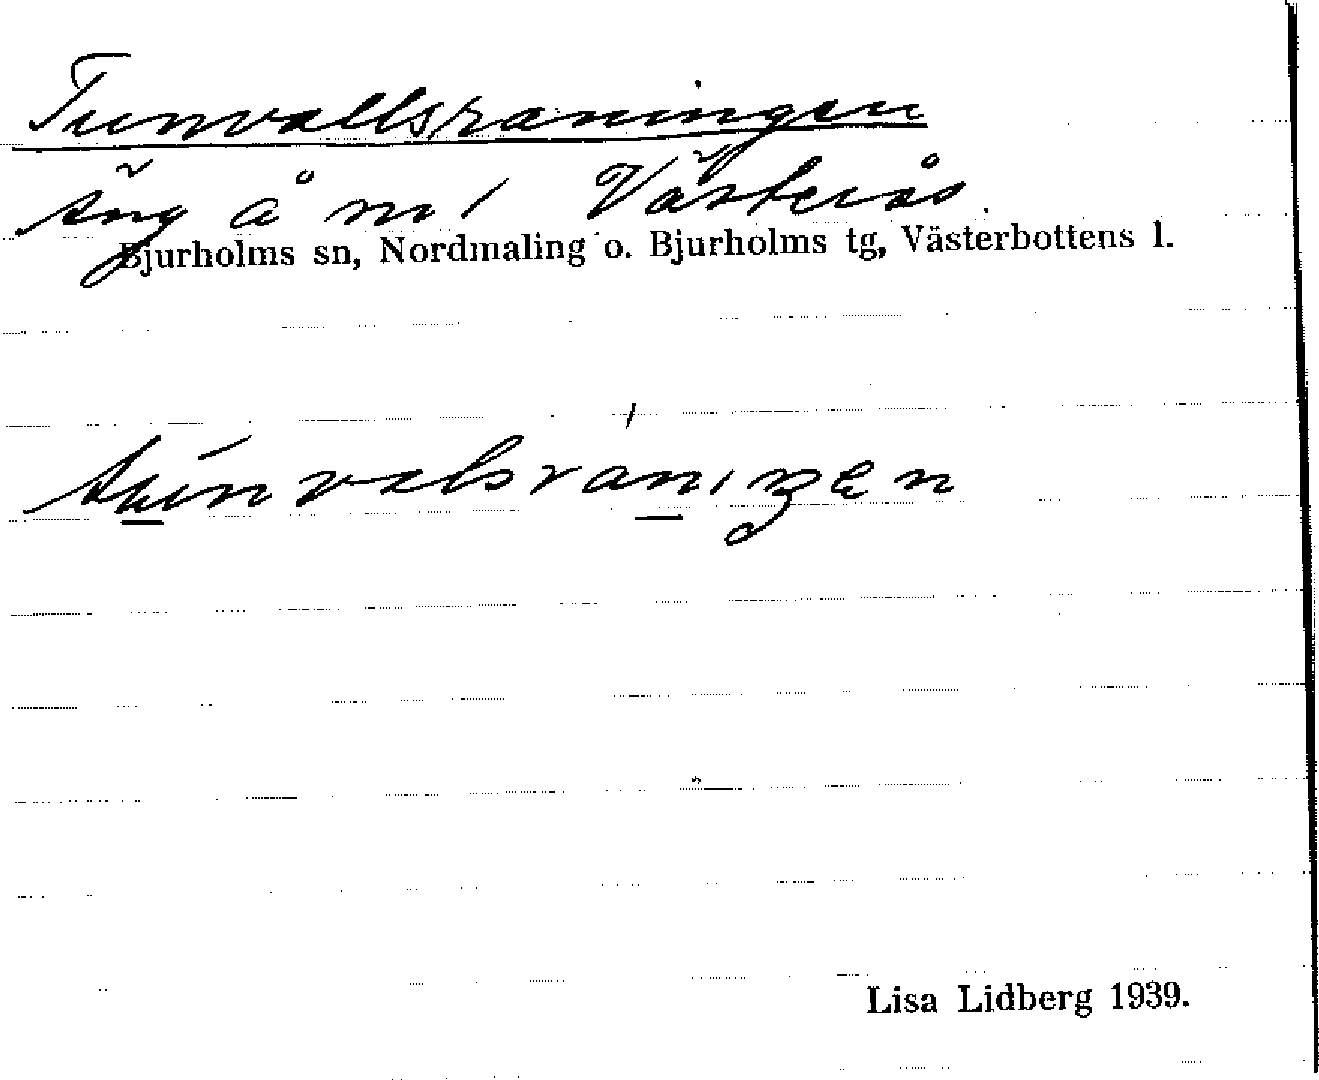 Tunvallsraningen
Äng å nr 1 Västerås.
Bjurholms sn, Nordmaling o. Bjurholms tg, Västerbottens l.
Lisa Lidberg 1939.